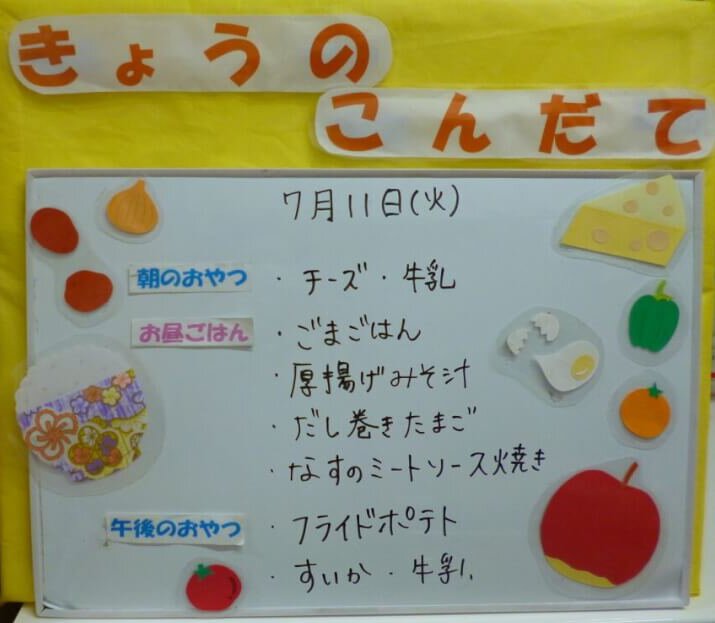 きょうの
こんだて
7月11日(火)
朝のおやつ ・チーズ・牛乳
お昼ごはん ・ごまごはん
・厚揚げみそ汁
・だし巻きたまご
・なすのミートソース焼き
午後のおやつ ・フライドポテト
・すいか・牛乳